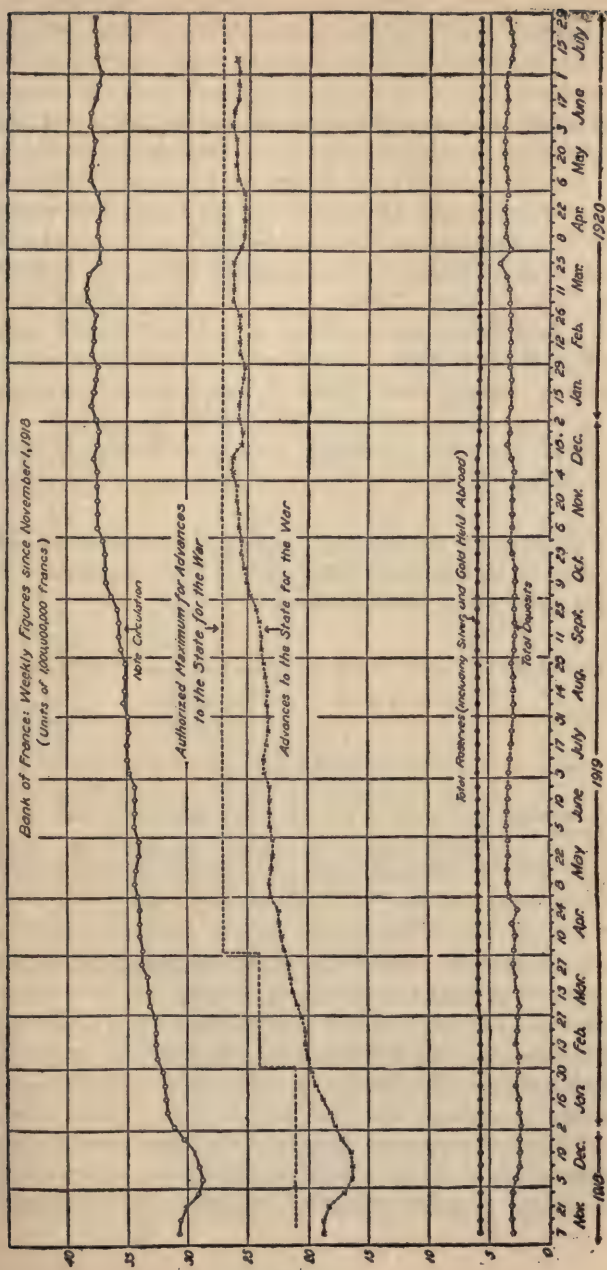 Bank of France: Weekly Figures since November 1, 1918
(Units of 1,000,000,000 francs)
45
40
35
30
25
20
15
10
5
0
Note Circulation
Authorized Maximum for Advances
to the State for the War
Advances to the State for the War
Total Reserves (including Silver, and Gold Held Abroad)
Total Deposits
7 21 5 19 2 16 30 13 27 13 27 10 24 8 22 5 19 3 17 31 14 28 11 25 9 23 6 20 4 18 2 15 29 12 26 11 25 8 22 6 20 3 17 1 15 29
Nov. Dec. Jan Feb. Mar. Apr. May June July Aug. Sept. Oct. Nov. Dec. Jan. Feb. Mar. Apr. May June July
1918 1919 1920